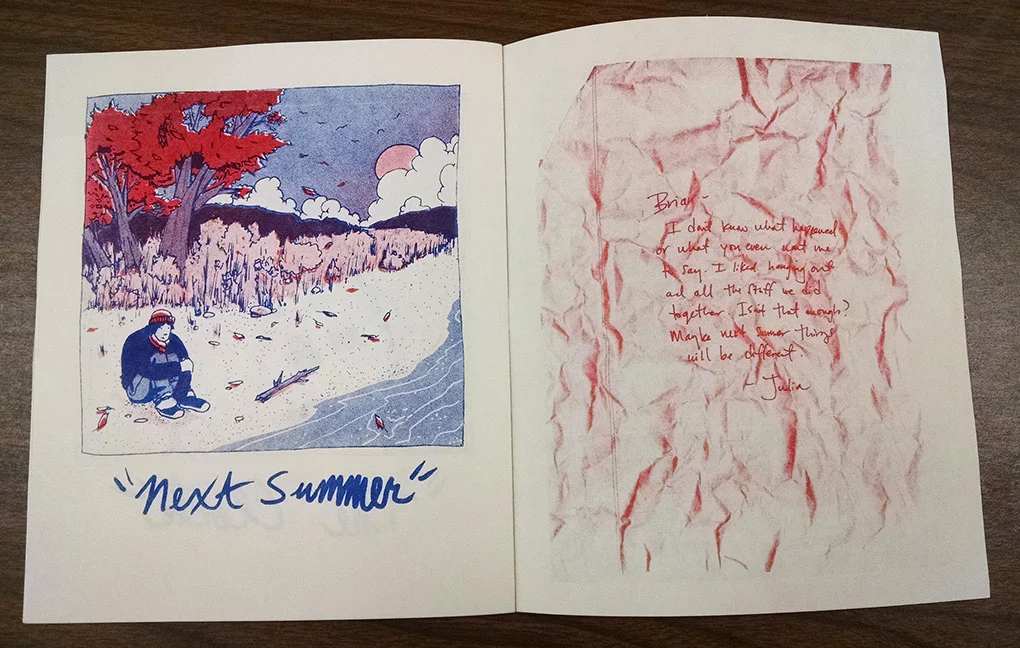 "Next Summer"
Brian -
I don't know what happened
or what you even want me
to say. I liked hanging out
and all the stuff we did
together. Isn't that enough?
Maybe next summer things
will be different.
- Julia